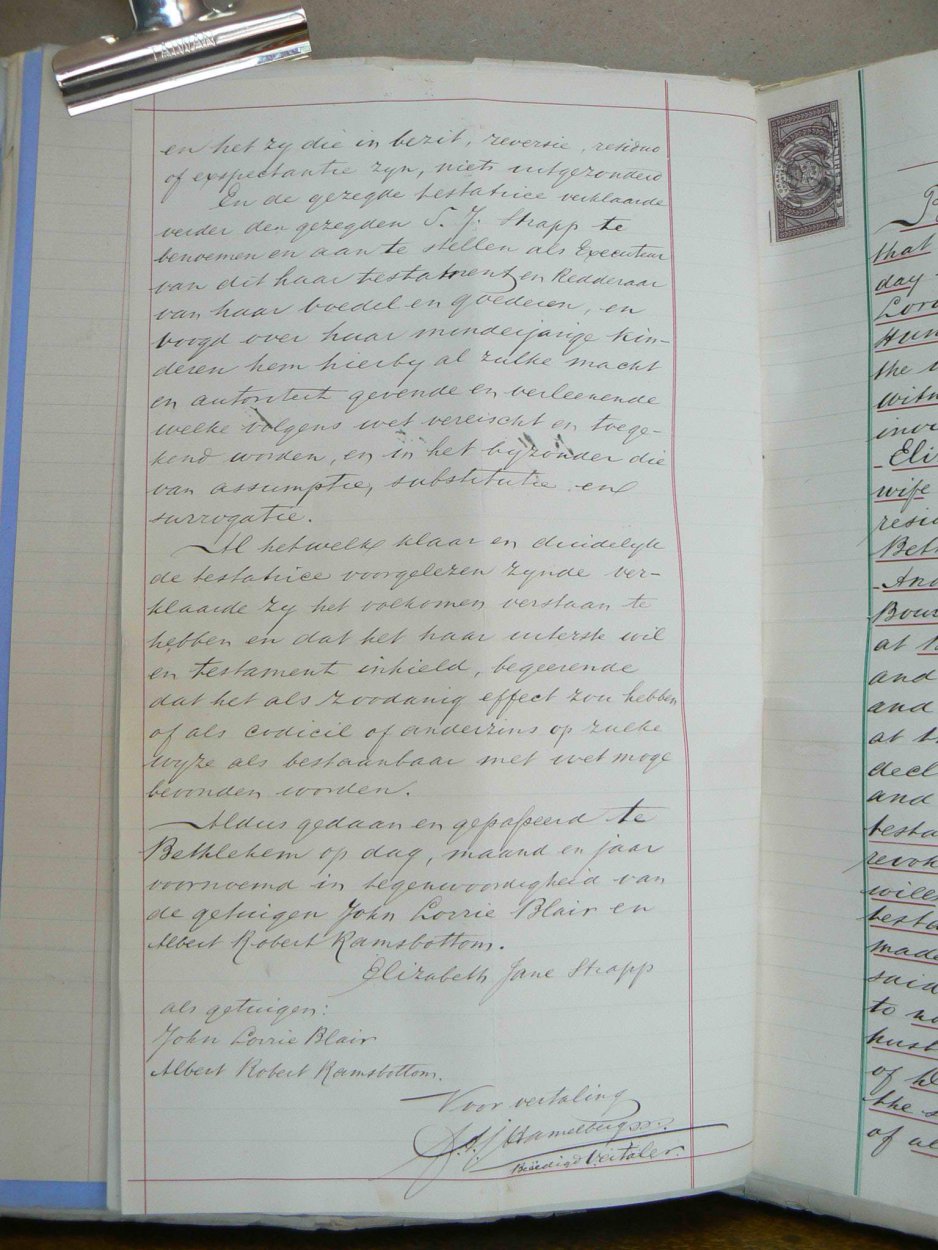 TAIWAN
en het zy die in bezit, reversie, residuo
of exspectantie zyn, niets uitgezonderd
En de gezegde testatrice verklaarde
verder den gezegden S. J. Strapp te
benoemen en aan te stellen als Executeur
van dit haar testament en Redderaar
van haar boedel en goederen, en
voogd over haar minderjarige kin-
deren hem hierby al zulke macht
en autoriteit gevende en verleenende
welke volgens wet vereischt en toege-
kend worden, en in het byzonder die
van assumptie, substitutie en
surrogatie.
Al hetwelk klaar en duidelyk
de testatrice voorgelezen zynde ver-
klaarde zy het volkomen verstaan te
hebben en dat het haar uiterste wil
en testament inhield, begeerende
dat het als zoodanig effect zou hebben
of als codicil of anderzins op zulke
wyze als bestaanbaar met wet moge
bevonden worden.
Aldus gedaan en gepasseerd te
Bethlehem op dag, maand en jaar
voornoemd in tegenwoordigheid van
de getuigen John Lorrie Blair en
Albert Robert Ramsbottom.
Elizabeth Jane Strapp
als getuigen:
John Lorrie Blair
Albert Robert Ramsbottom.
Voor vertaling
Beëedigd Vertaler.
that
day
Lord
the
Eli
wife
resi
Beth
And
Bour
at
and
and
at
decl
and
testa
revok
wills
testa
made
said
to
husb
of
the s
of al